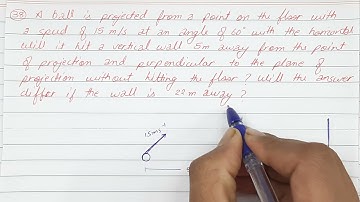 (38) A ball is projected from a point on the floor with
a speed of 15 m/s at an angle of 60° with the horizontal
will it hit a vertical wall 5m away from the point
of projection and perpendicular to the plane of
projection without hitting the floor? Will the answer
differ if the wall is 22 m away?
15 m/s